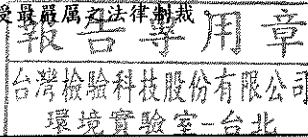 受最嚴厲之法律制裁
報告專用章
台灣檢驗科技股份有限公司
環境實驗室-台北